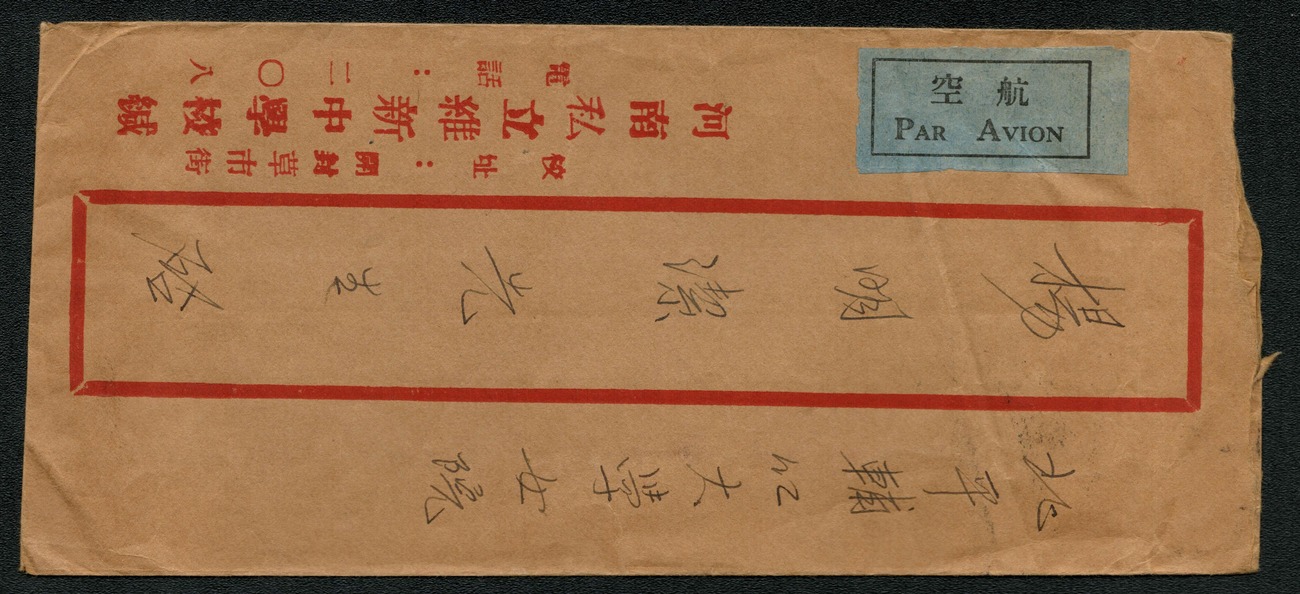 北平輔仁大學女院
楊明潔先生啟
校址：開封草市街
河南私立維新中學校緘
電話：二〇八
航空
PAR AVION